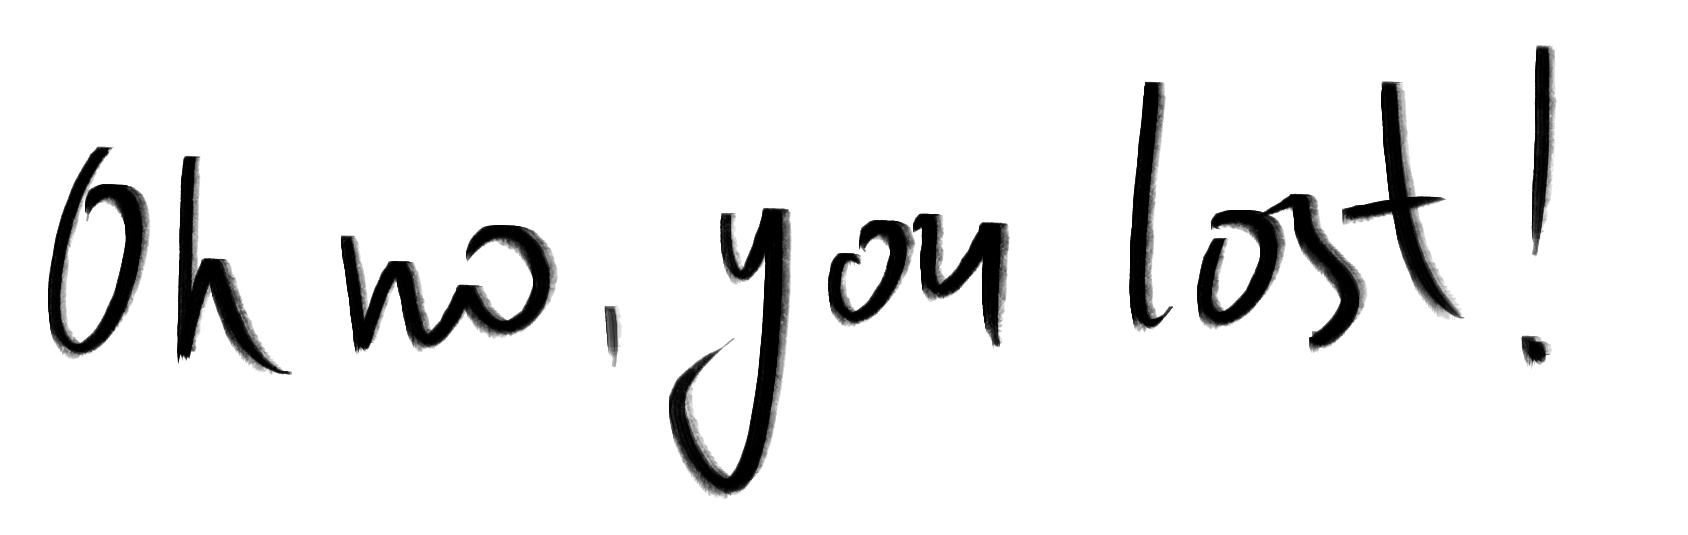 Oh no, you lost!